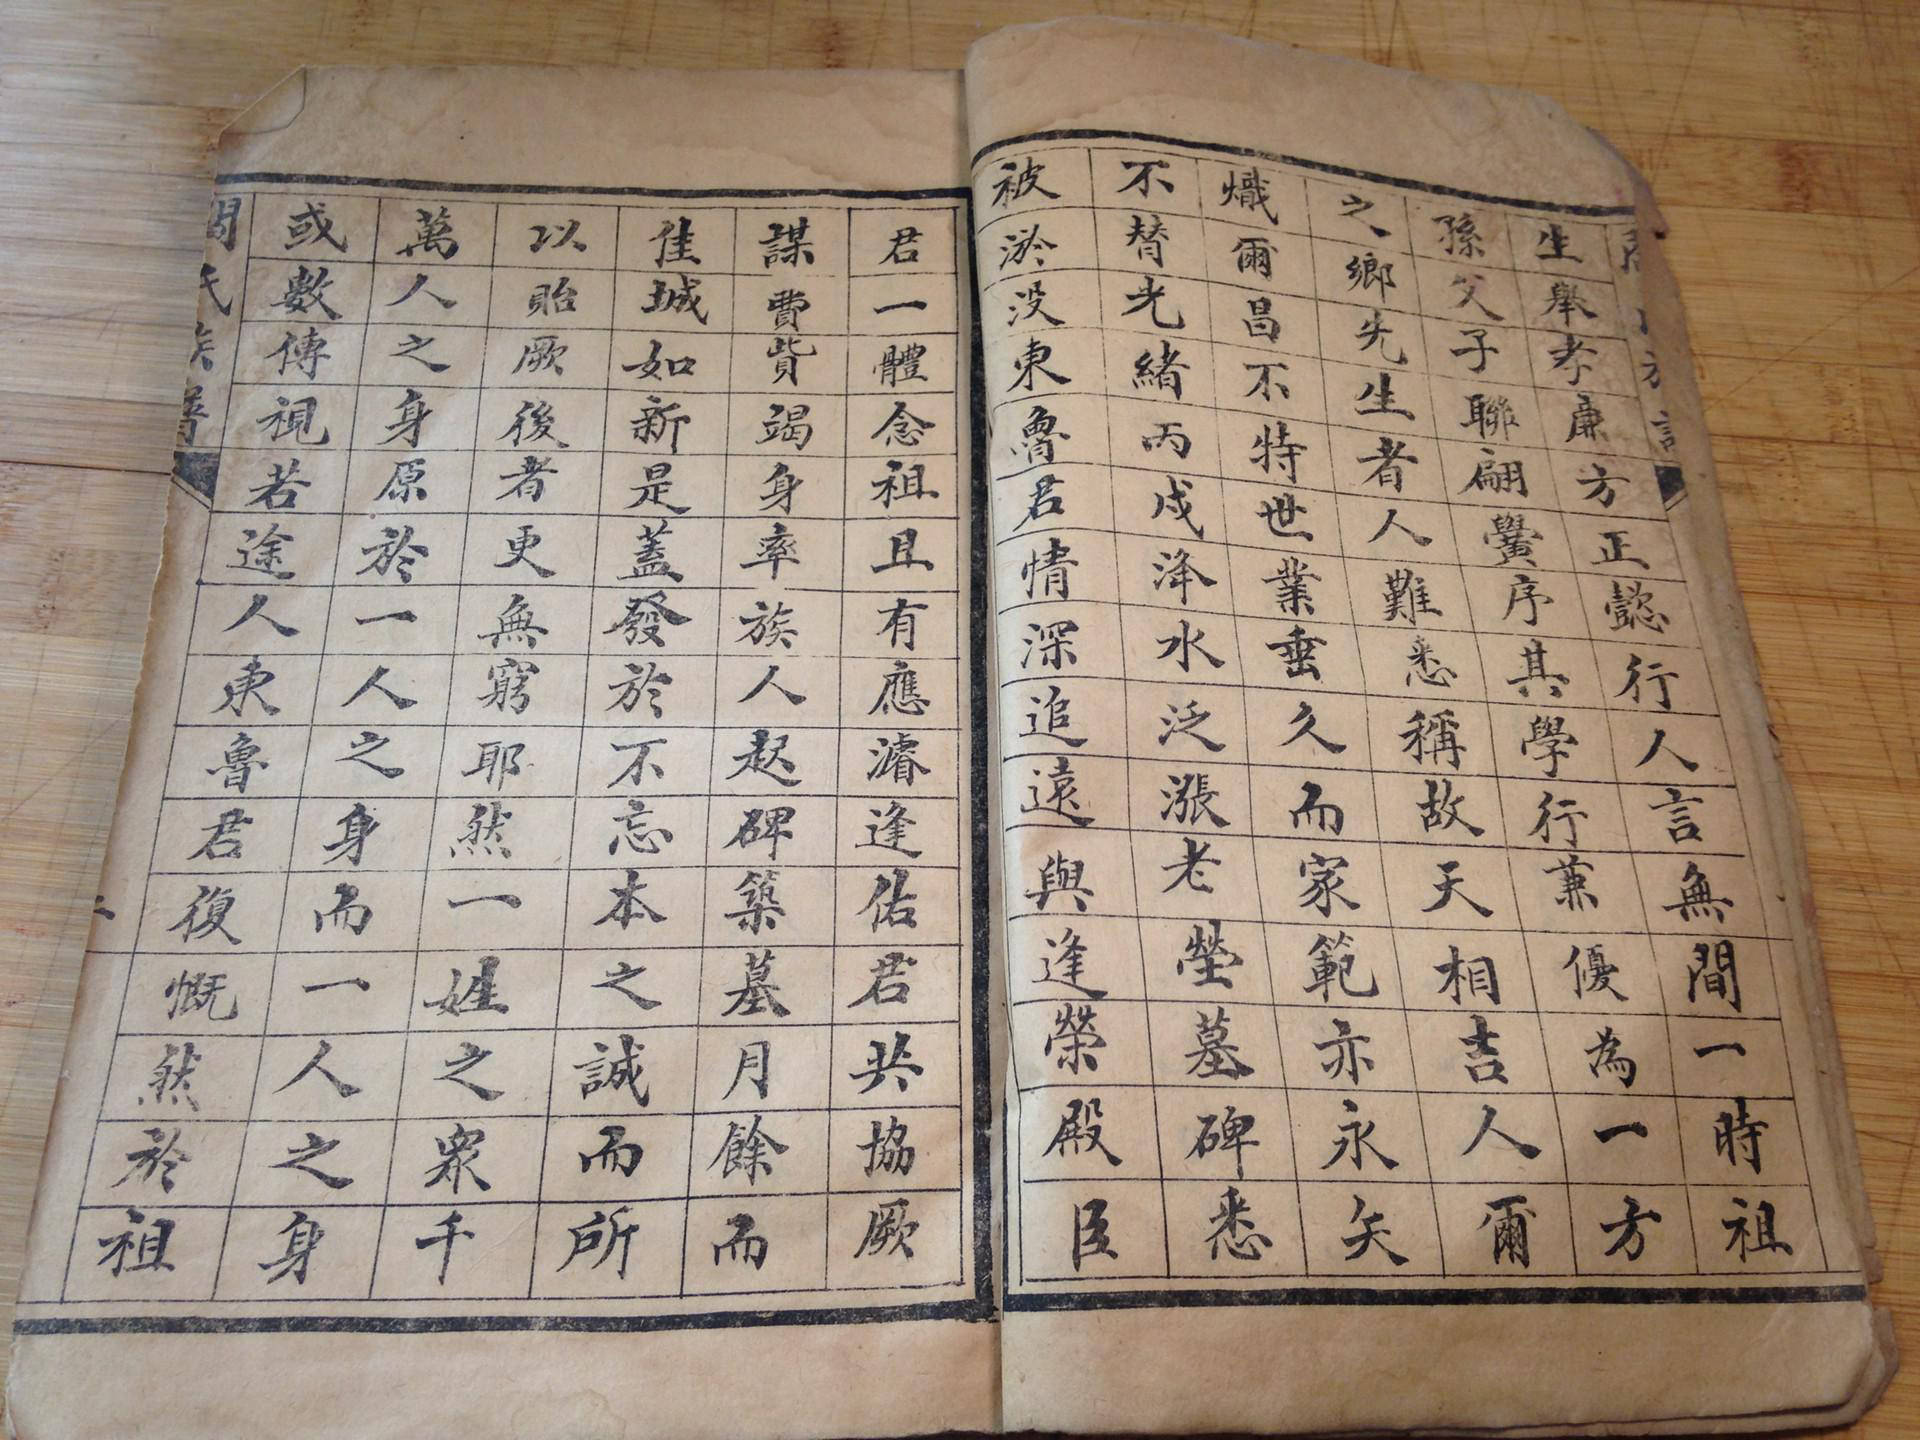 生舉孝廉方正懿行人言無間一時祖
孫父子聯翩黌序其學行兼優為一方
之鄉先生者人難悉稱故天相吉人爾
熾爾昌不特世業垂久而家範亦永矣
不替光緒丙戌泽水泛漲老塋墓碑悉
被淤没東魯君情深追遠與逢榮殿臣
君一體念祖且有應濬逢佑君共協厥
謀費貲竭身率族人起碑築墓月餘而
佳城如新是蓋發於不忘本之誠而所
以貽厥後者更無窮耶然一姓之眾千
萬人之身原於一人之身而一人之身
或數傳視若途人東魯君復慨然於祖
氏族譜